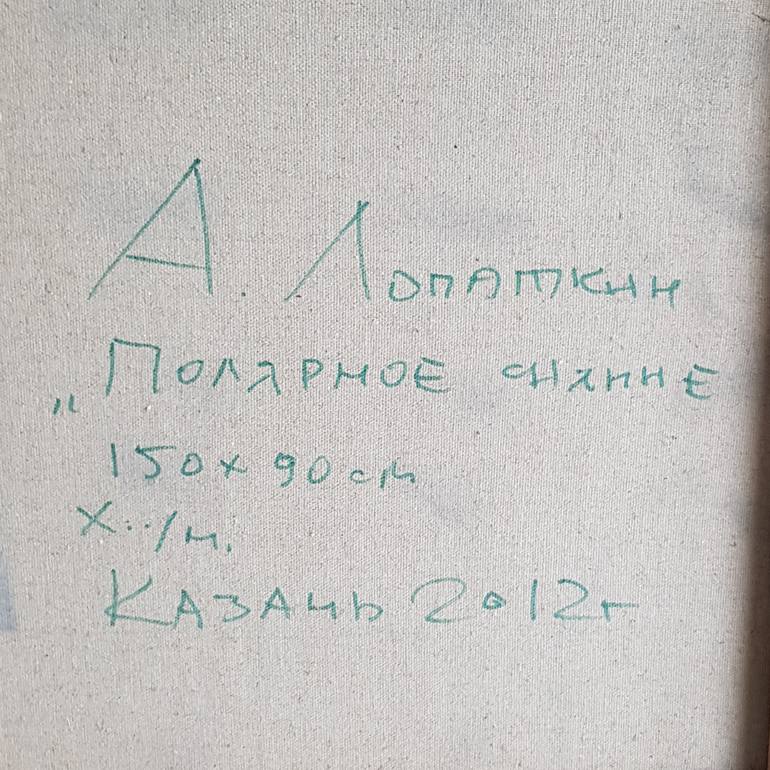 А. Лопаткин
„Полярное сияние
150х90 см
Х../м.
Казань 2012г